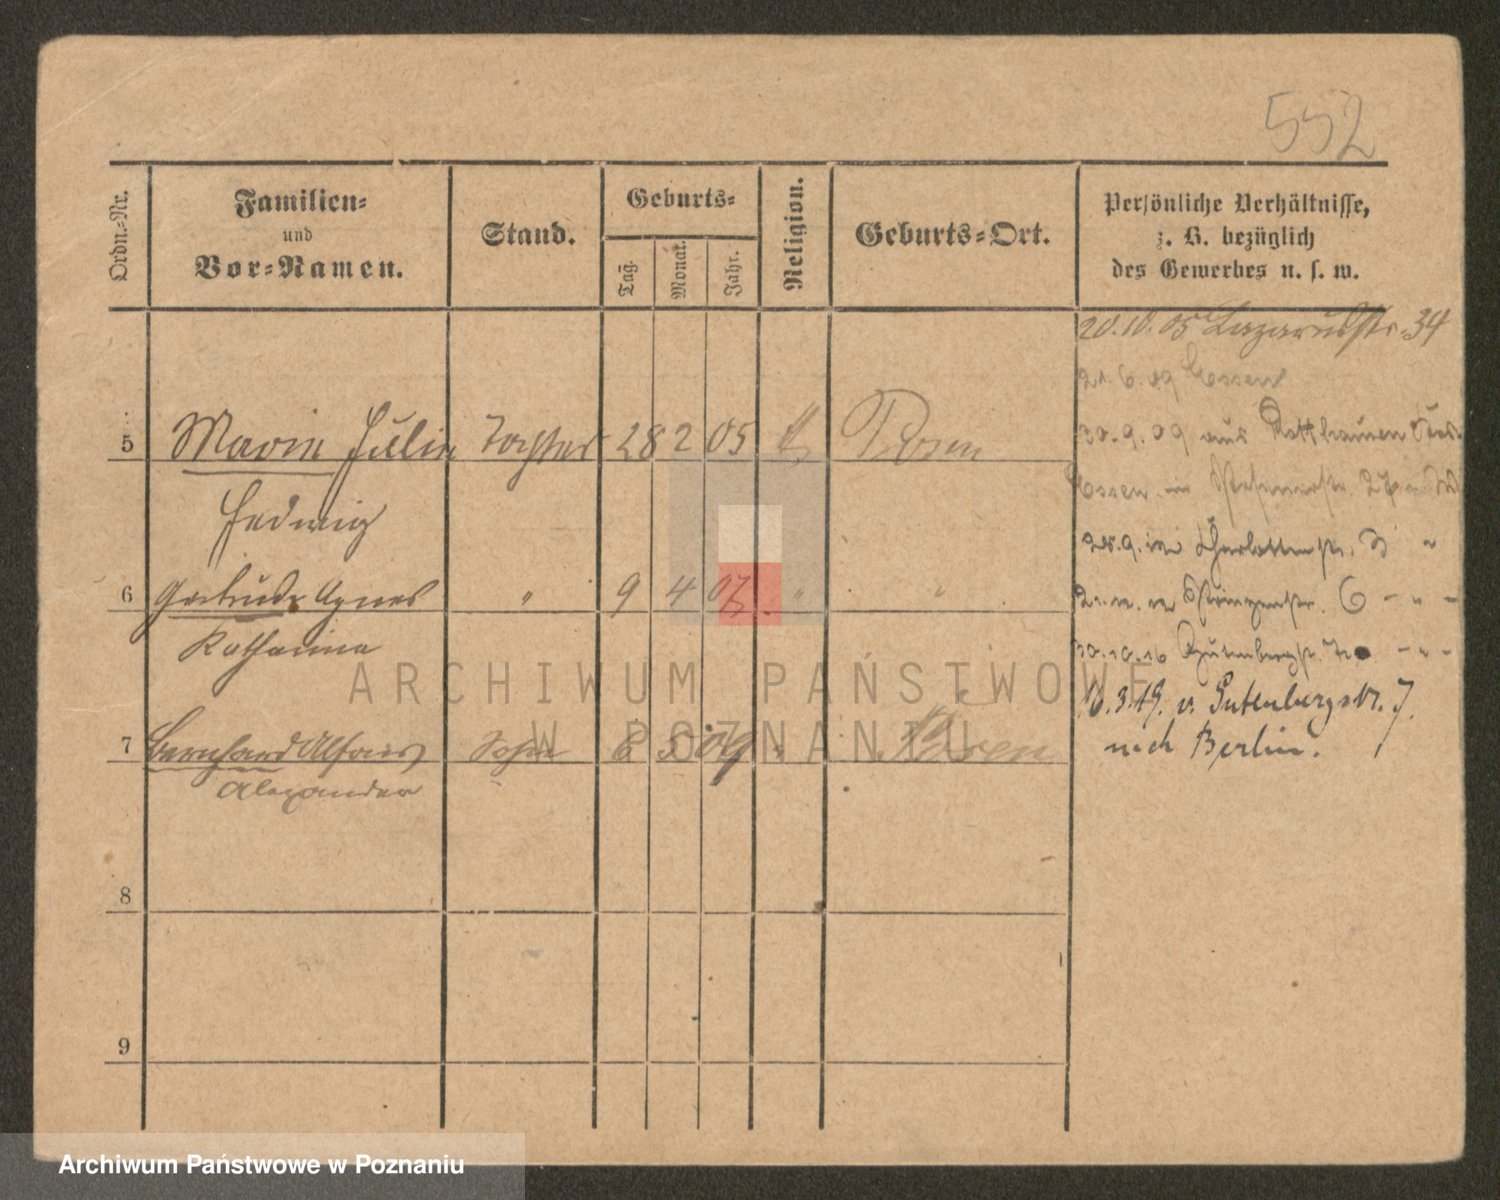 552
Ordn.-Nr.
Familien-
und
Vor-Namen.
Stand.
Geburts-
Tag.
Monat.
Jahr.
Religion.
Geburts-Ort.
Persönliche Verhältnisse,
z. B. bezüglich
des Gewerbes u. s. w.
20.10.05 Lazarusstr. 34
21.6.09 Essen
5 Maria Julie Tochter 28 2 05 k Posen
30.9.09 aus
Essen in
Hedwig
28.9. Charlottenstr. 3 "
6 Gertrude Agnes " 9 4 07 " "
6 - " -
Katharina
30.10.16 Gutenbergstr. - " -
ARCHIWUM PAŃSTWOWE
W POZNANIU
3.19. v. Gutenbergstr. 7.
7 Bernhard Alfons Sohn 6 5 09 " Posen
nach Berlin.
Alexander
8
9
Archiwum Państwowe w Poznaniu